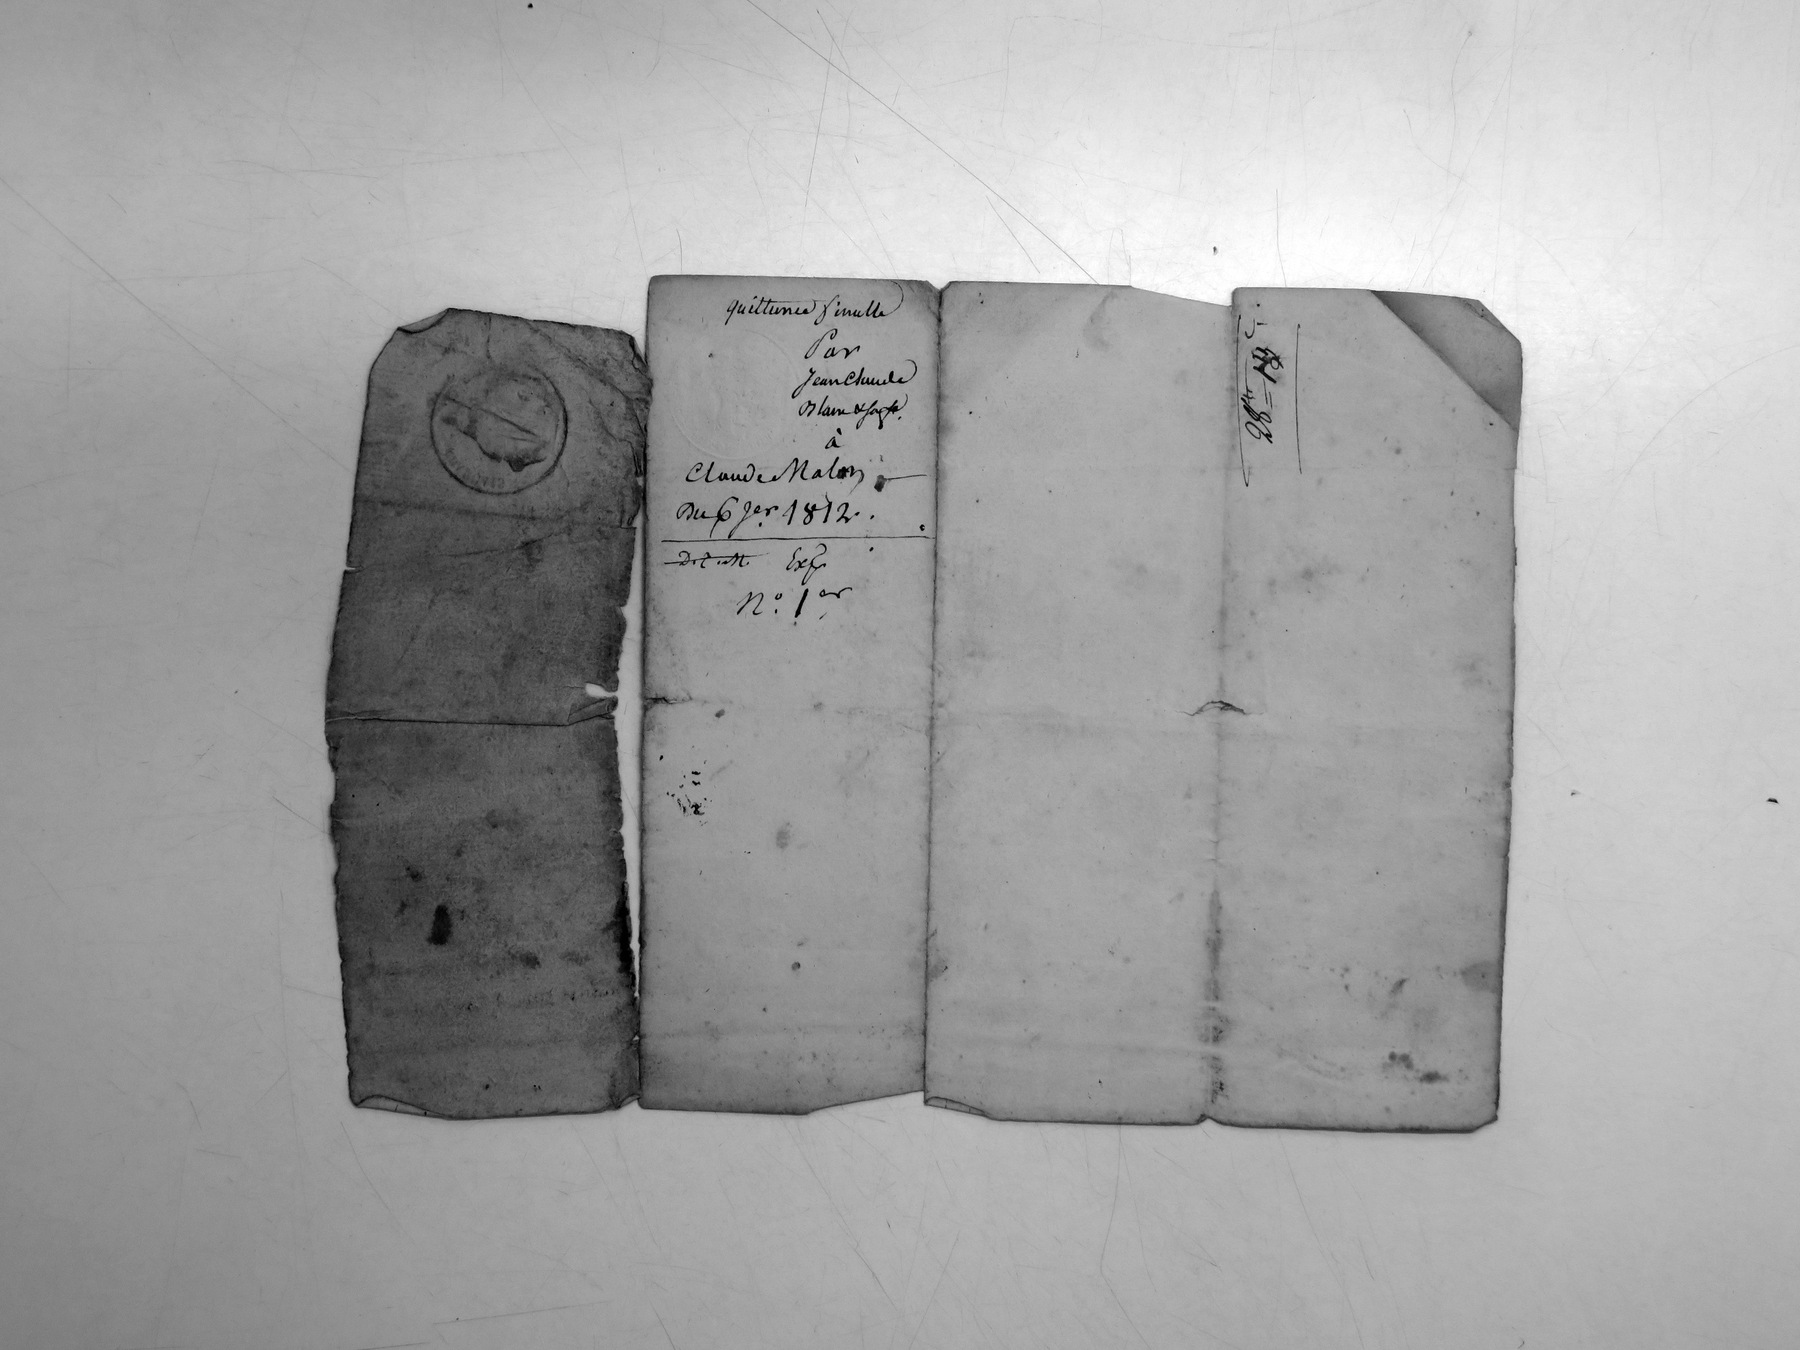 quittance finalle
Par
Jean Claude
Blanc & sa fe.
à
Claude Malon
Du 6 Jer. 1812.
D.C.M. Exp
N.º 1er
28 = 14